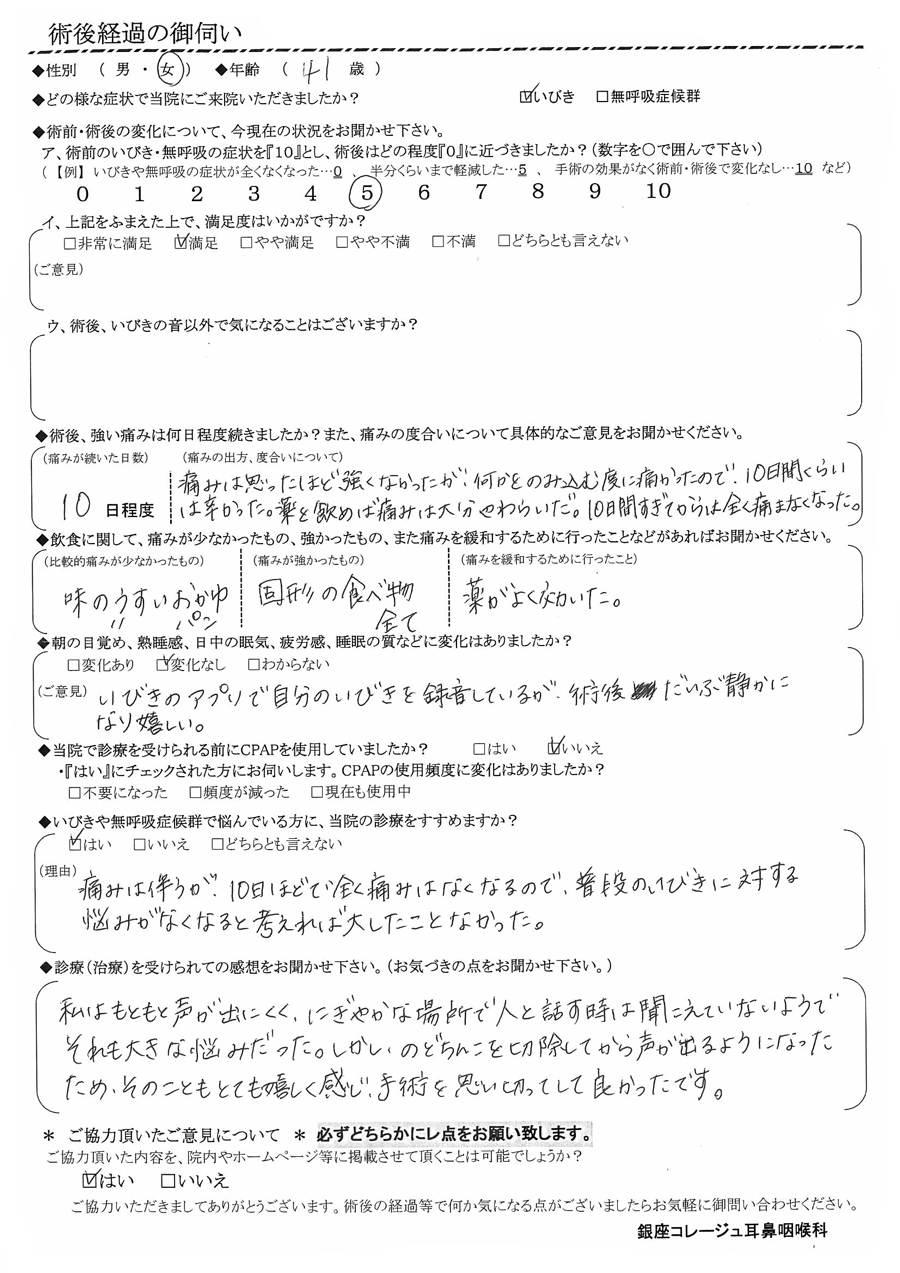 術後経過の御伺い
◆性別 ( 男 ・ 女 ) ◆年齢 ( 41 歳 )
◆どの様な症状で当院にご来院いただきましたか? ☑いびき □無呼吸症候群
◆術前・術後の変化について、今現在の状況をお聞かせ下さい。
ア、術前のいびき・無呼吸の症状を『10』とし、術後はどの程度『0』に近づきましたか?(数字を○で囲んで下さい)
(【例】 いびきや無呼吸の症状が全くなくなった…0 、 半分くらいまで軽減した…5 、 手術の効果がなく術前・術後で変化なし…10 など)
0 1 2 3 4 5 6 7 8 9 10
イ、上記をふまえた上で、満足度はいかがですか?
□非常に満足 ☑満足 □やや満足 □やや不満 □不満 □どちらとも言えない
(ご意見)
ウ、術後、いびきの音以外で気になることはございますか?
◆術後、強い痛みは何日程度続きましたか?また、痛みの度合いについて具体的なご意見をお聞かせください。
(痛みが続いた日数) (痛みの出方、度合いについて)
痛みは思ったほど強くなかったが、何かをのみ込む度に痛かったので、10日間くらい
10 日程度 は辛かった。薬を飲めば痛みは大分やわらいだ。10日間すぎてからは全く痛まなくなった。
◆飲食に関して、痛みが少なかったもの、強かったもの、また痛みを緩和するために行ったことなどがあればお聞かせください。
(比較的痛みが少なかったもの) (痛みが強かったもの) (痛みを緩和するために行ったこと)
味のうすいおかゆ 固形の食べ物 薬がよく効いた。
〃 パン 全て
◆朝の目覚め、熟睡感、日中の眠気、疲労感、睡眠の質などに変化はありましたか?
□変化あり ☑変化なし □わからない
(ご意見) いびきのアプリで自分のいびきを録音しているが、術後だいぶ静かに
なり嬉しい。
◆当院で診療を受けられる前にCPAPを使用していましたか? □はい ☑いいえ
・『はい』にチェックされた方にお伺いします。CPAPの使用頻度に変化はありましたか?
□不要になった □頻度が減った □現在も使用中
◆いびきや無呼吸症候群で悩んでいる方に、当院の診療をすすめますか?
☑はい □いいえ □どちらとも言えない
(理由) 痛みは伴うが、10日ほどで全く痛みはなくなるので、普段のいびきに対する
悩みがなくなると考えれば大したことなかった。
◆診療(治療)を受けられての感想をお聞かせ下さい。(お気づきの点をお聞かせ下さい。)
私はもともと声が出にくく、にぎやかな場所で人と話す時は聞こえていないようで
それも大きな悩みだった。しかし、のどちんこを切除してから声が出るようになった
ため、そのこともとても嬉しく感じ、手術を思い切ってして良かったです。
＊ ご協力頂いたご意見について ＊ 必ずどちらかにレ点をお願い致します。
ご協力頂いた内容を、院内やホームページ等に掲載させて頂くことは可能でしょうか?
☑はい □いいえ
ご協力いただきましてありがとうございます。術後の経過等で何か気になる点がございましたらお気軽に御問い合わせください。
銀座コレージュ耳鼻咽喉科